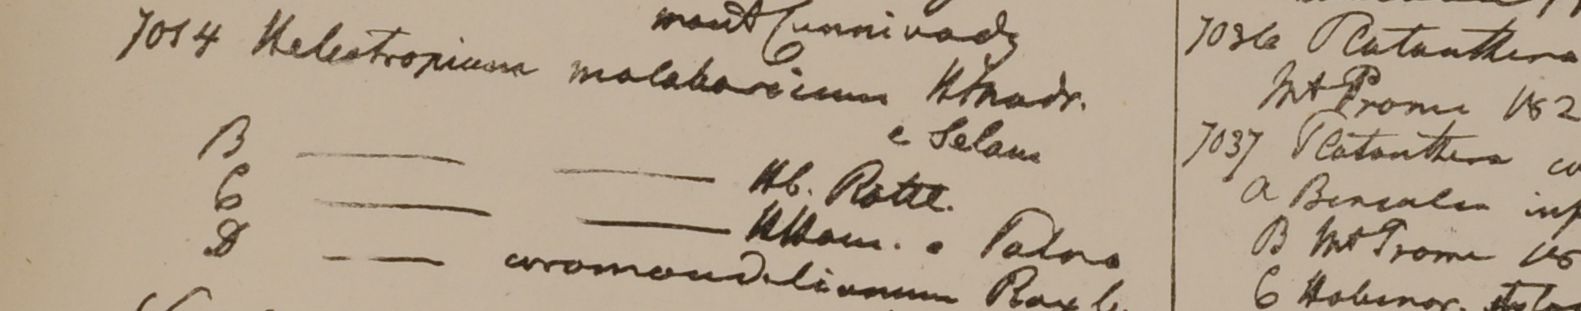 mont Cunnivady
7014 Heleotropium malabaricum H Madr.
e Selam
B — — Hb. Rottl.
C — — HHam. e
D — coromandelianum Roxb.
7036 Platanthera
Mt Prome 182
7037 Platanthera
a
B Mt Prome
C Habenar.